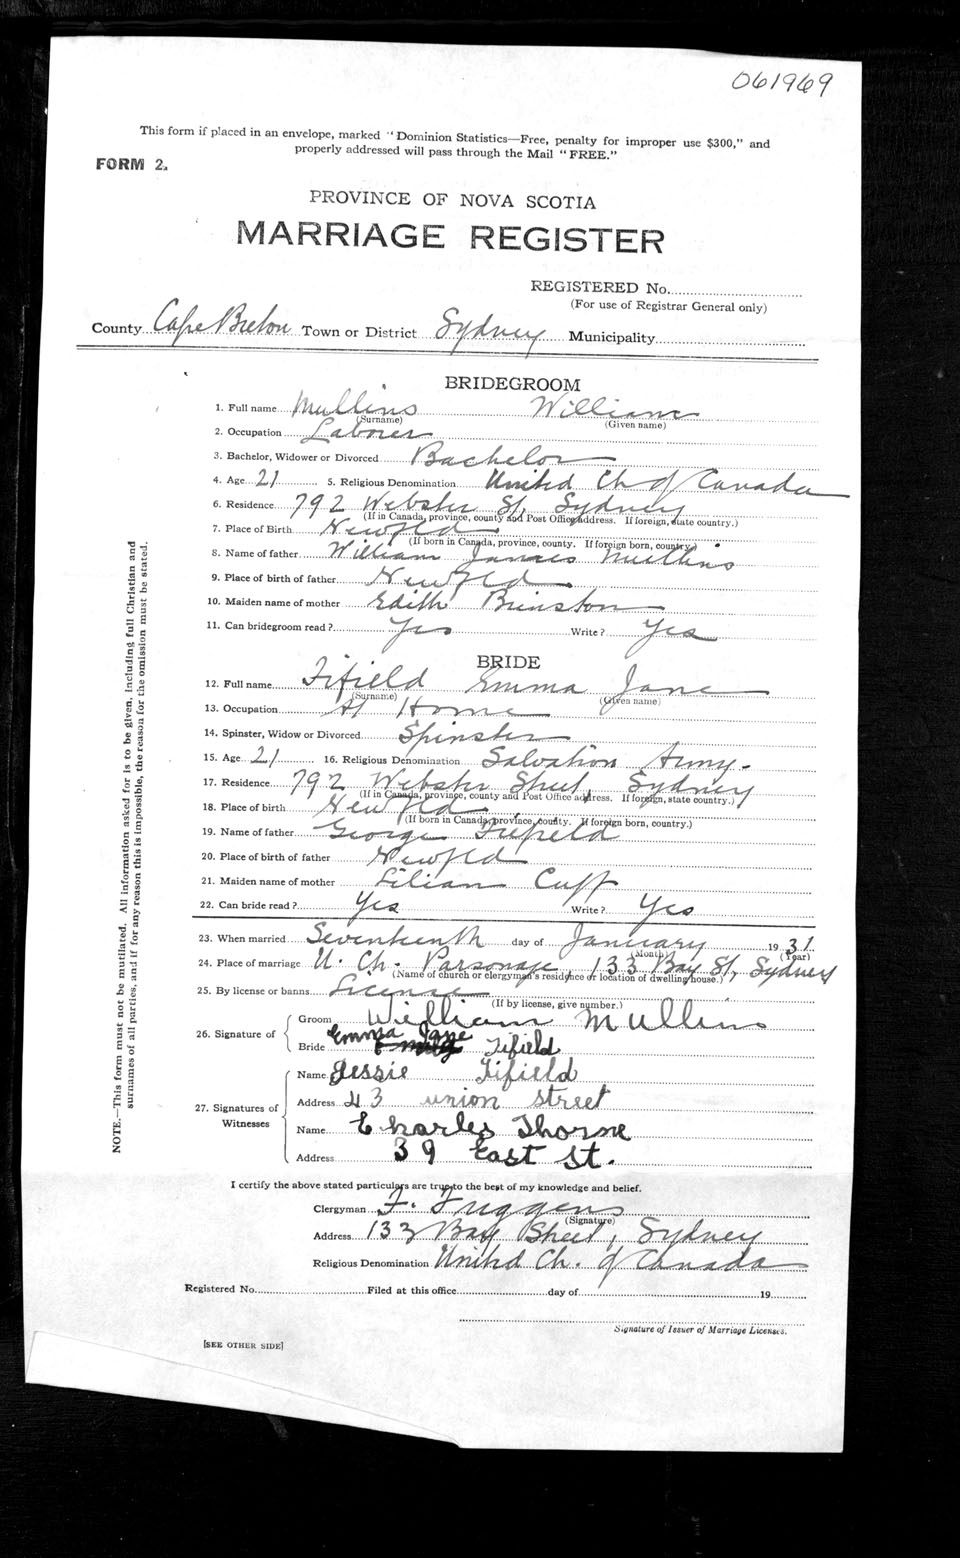 061969
This form if placed in an envelope, marked "Dominion Statistics—Free, penalty for improper use $300," and
properly addressed will pass through the Mail "FREE."
FORM 2.
PROVINCE OF NOVA SCOTIA
MARRIAGE REGISTER
REGISTERED No.
(For use of Registrar General only)
County Cape Breton Town or District Sydney Municipality
BRIDEGROOM
1. Full name Mullins William
(Surname) (Given name)
2. Occupation Laborer
3. Bachelor, Widower or Divorced Bachelor
4. Age 21 5. Religious Denomination United Ch of Canada
6. Residence 792 Webster St, Sydney
(If in Canada, province, county and Post Office address. If foreign, state country.)
7. Place of Birth Newfld
(If born in Canada, province, county. If foreign born, country.)
8. Name of father William James Mullins
9. Place of birth of father Newfld
10. Maiden name of mother Edith Brinston
11. Can bridegroom read? Yes Write? Yes
BRIDE
12. Full name Fifield Emma Jane
(Surname) (Given name)
13. Occupation At Home
14. Spinster, Widow or Divorced Spinster
15. Age 21 16. Religious Denomination Salvation Army-
17. Residence 792 Webster Street, Sydney
(If in Canada, province, county and Post Office address. If foreign, state country.)
18. Place of birth Newfld
(If born in Canada, province, county. If foreign born, country.)
19. Name of father George Fifield
20. Place of birth of father Newfld
21. Maiden name of mother Lilian Cuff
22. Can bride read? Yes Write? Yes
23. When married Seventeenth day of January 1931
(Month) (Year)
24. Place of marriage U. Ch. Parsonage, 133 Bay St, Sydney
(Name of church or clergyman's residence or location of dwelling house.)
25. By license or banns License
(If by license, give number.)
26. Signature of Groom William Mullins
Bride Emma Jane Fifield
27. Signatures of Witnesses
Name Jessie Fifield
Address 43 union street
Name Charles Thorne
Address 39 East St.
I certify the above stated particulars are true to the best of my knowledge and belief.
Clergyman F. Fuggens
(Signature)
Address 133 Bay Street, Sydney
Religious Denomination United Ch. of Canada
Registered No. Filed at this office day of 19
Signature of Issuer of Marriage Licenses.
[SEE OTHER SIDE]
NOTE.—This form must not be mutilated. All information asked for is to be given, including full Christian and
surnames of all parties, and if for any reason this is impossible, the reason for the omission must be stated.